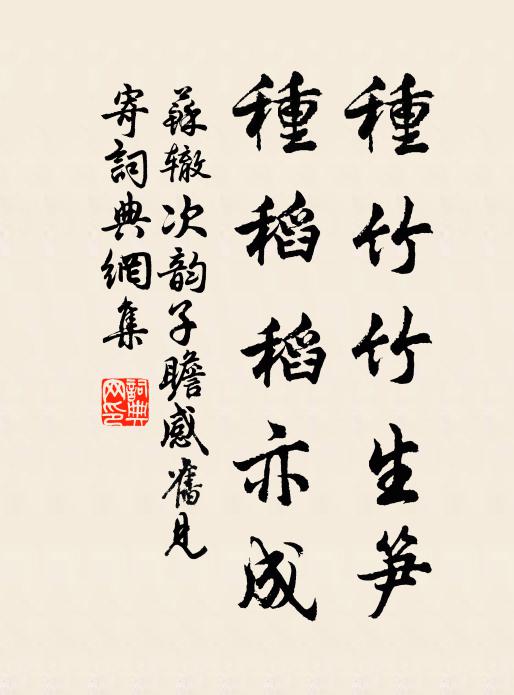 種竹竹生笋
種稻稻亦成
蘇辙次韵子瞻感舊見
寄詞典網集
詞典
网印